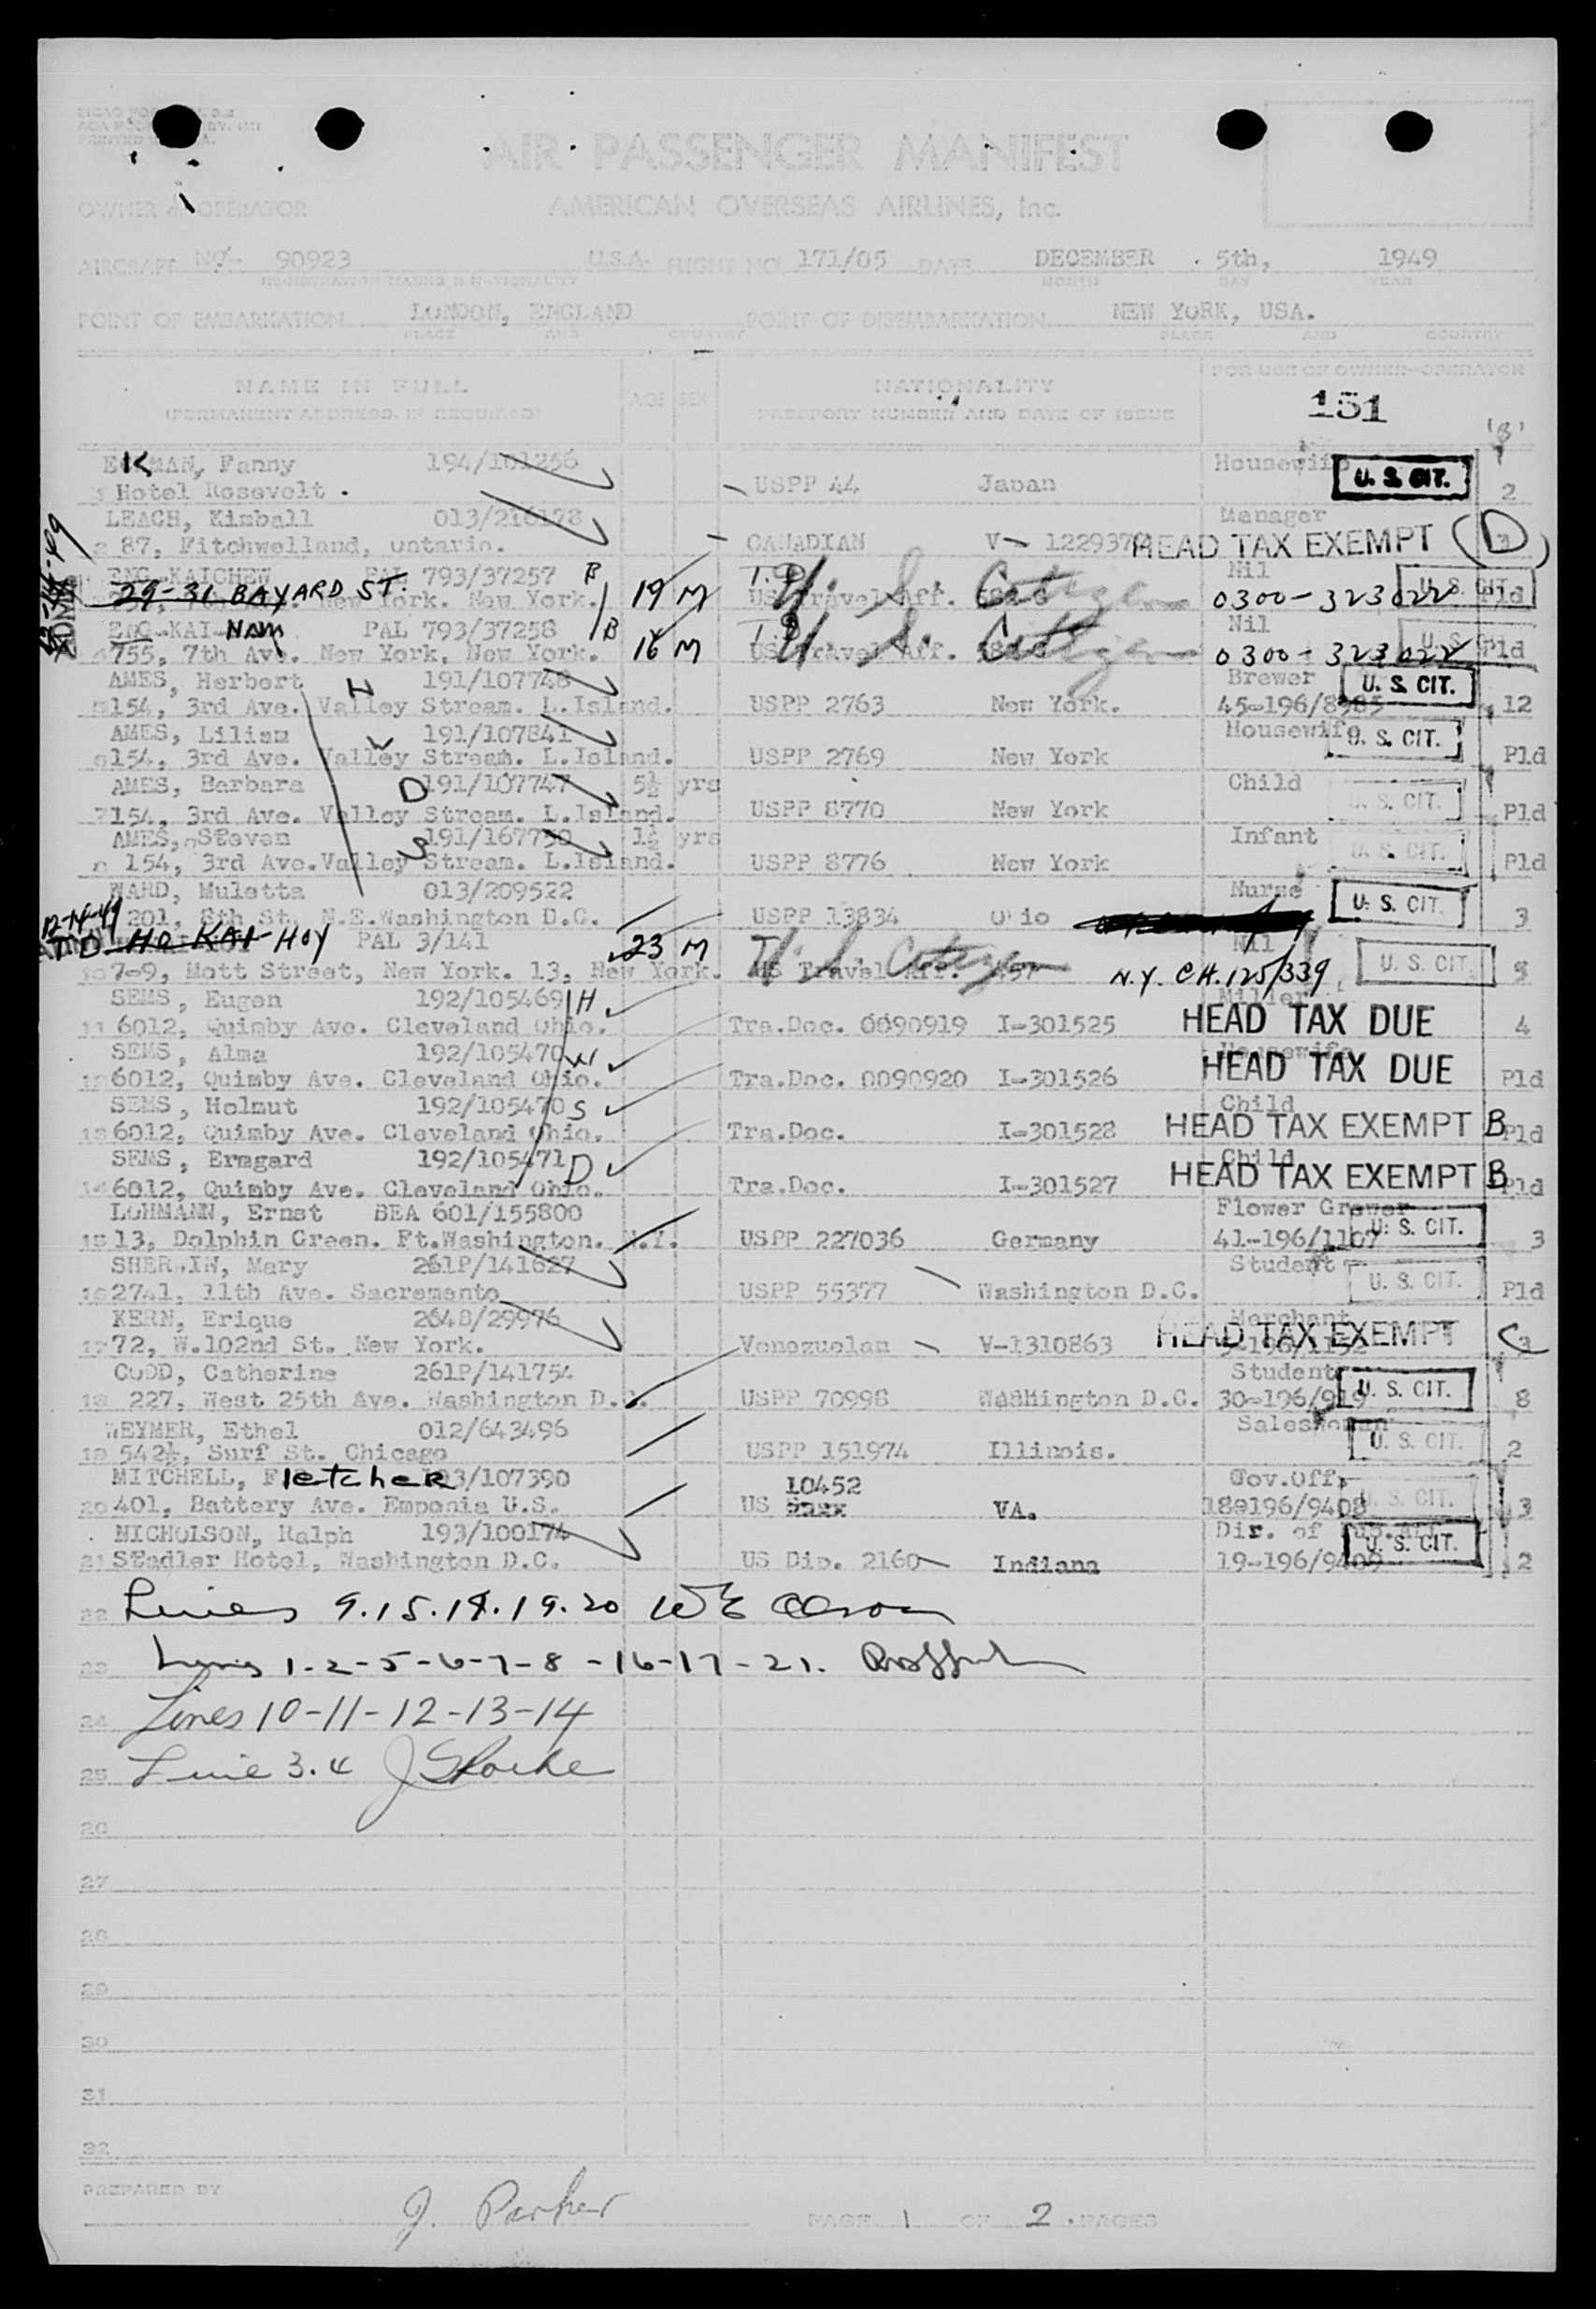 AIR PASSENGER MANIFEST
OWNER or OPERATOR AMERICAN OVERSEAS AIRLINES, Inc.
AIRCRAFT No. 90923 U.S.A. FLIGHT NO. 171/05 DATE DECEMBER 5th, 1949
REGISTRATION MARKS & NATIONALITY MONTH DAY YEAR
POINT OF EMBARKATION LONDON, ENGLAND POINT OF DISEMBARKATION NEW YORK, USA.
PLACE AND COUNTRY PLACE AND COUNTRY
NAME IN FULL AGE SEX NATIONALITY FOR USE OF OWNER-OPERATOR
(PERMANENT ADDRESS, IF REQUIRED) PASSPORT NUMBER AND DATE OF ISSUE 151
(8)
MAN, Fanny 194/101256 Housewife U. S. CIT.
Hotel Rosevelt . USPP 44 Japan 2
LEACH, Kimball 013/216178 Manager
2 87, Fitchwelland, ontario. CANADIAN V- 1229370 HEAD TAX EXEMPT (D)
ENG KAICHEW PAL 793/37257 B Nil U. S. CIT.
29-31 BAYARD ST. New York. New York. 19 M US Travel Aff. U. S. Citizen 0300-323022 Pld
ENG KAI NAM PAL 793/37258 B Nil U. S.
4 755, 7th Ave. New York, New York. 16 M US Travel Aff. U. S. Citizen 0300-323022 Pld
AMES, Herbert H 191/107748 Brewer U. S. CIT.
5 154, 3rd Ave. Valley Stream. L.Island. USPP 2763 New York. 45-196/8985 12
AMES, Lilian W 191/107841 Housewife U. S. CIT.
6 154, 3rd Ave. Valley Stream. L.Island. USPP 2769 New York Pld
AMES, Barbara D 191/107747 5½ yrs Child U. S. CIT.
7 154, 3rd Ave. Valley Stream. L.Island. USPP 8770 New York Pld
AMES, Steven S 191/167750 1½ yrs Infant U. S. CIT.
8 154, 3rd Ave.Valley Stream. L.Island. USPP 8776 New York Pld
WARD, Muletta 013/209522 Nurse U. S. CIT.
201, 8th St. N.E.Washington D.C. USPP 13834 Ohio 3
12-14-49
HO KAI HOY PAL 3/141 23 M U. S. Citizen Nil U. S. CIT.
10 7-9, Mott Street, New York. 13, New York. US Travel Aff. N.Y. CH.125/339 5
SEMS, Eugen 192/105469 H Miller
11 6012, Quimby Ave. Cleveland Ohio. Tra.Doc. 0090919 I-301525 HEAD TAX DUE 4
SEMS, Alma 192/105470 W Housewife
12 6012, Quimby Ave. Cleveland Ohio. Tra.Doc. 0090920 I-301526 HEAD TAX DUE Pld
SEMS, Helmut 192/105470 S Child
13 6012, Quimby Ave. Cleveland Ohio. Tra.Doc. I-301528 HEAD TAX EXEMPT B Pld
SEMS, Ermgard 192/105471 D Child
14 6012, Quimby Ave. Cleveland Ohio. Tra.Doc. I-301527 HEAD TAX EXEMPT B Pld
LOHMANN, Ernst BEA 601/155800 Flower Grower U. S. CIT.
15 13, Dolphin Green. Ft.Washington. N.Y. USPP 227036 Germany 41-196/1167 3
SHERWIN, Mary 261P/141627 Student U. S. CIT.
16 2741, 11th Ave. Sacremento USPP 55377 Washington D.C. Pld
KERN, Erique 264B/29976 Merchant
17 72, W.102nd St. New York. Venezuelan V-1310863 HEAD TAX EXEMPT C
CODD, Catherine 261P/141754 Student U. S. CIT.
18 227, West 25th Ave. Washington D.C. USPP 70998 Washington D.C. 30-196/919 8
WEYMER, Ethel 012/643496 Saleswoman U. S. CIT.
19 542½, Surf St. Chicago USPP 151974 Illinois. 2
MITCHELL, Fletcher 193/107390 10452 Gov.Off. U. S. CIT.
20 401, Battery Ave. Emponia U.S. US VA. 180196/9408 3
NICHOLSON, Ralph 193/100174 Dir. of U. S. CIT.
21 Stadler Hotel, Washington D.C. US Dip. 2160 Indiana 19-196/9409 2
22 Lines 9.15.18.19.20
23 Lines 1-2-5-6-7-8-16-17-21.
24 Lines 10-11-12-13-14
25 Line 3.4
26
27
28
29
30
31
32
PREPARED BY J. Parker PAGE 1 OF 2 PAGES